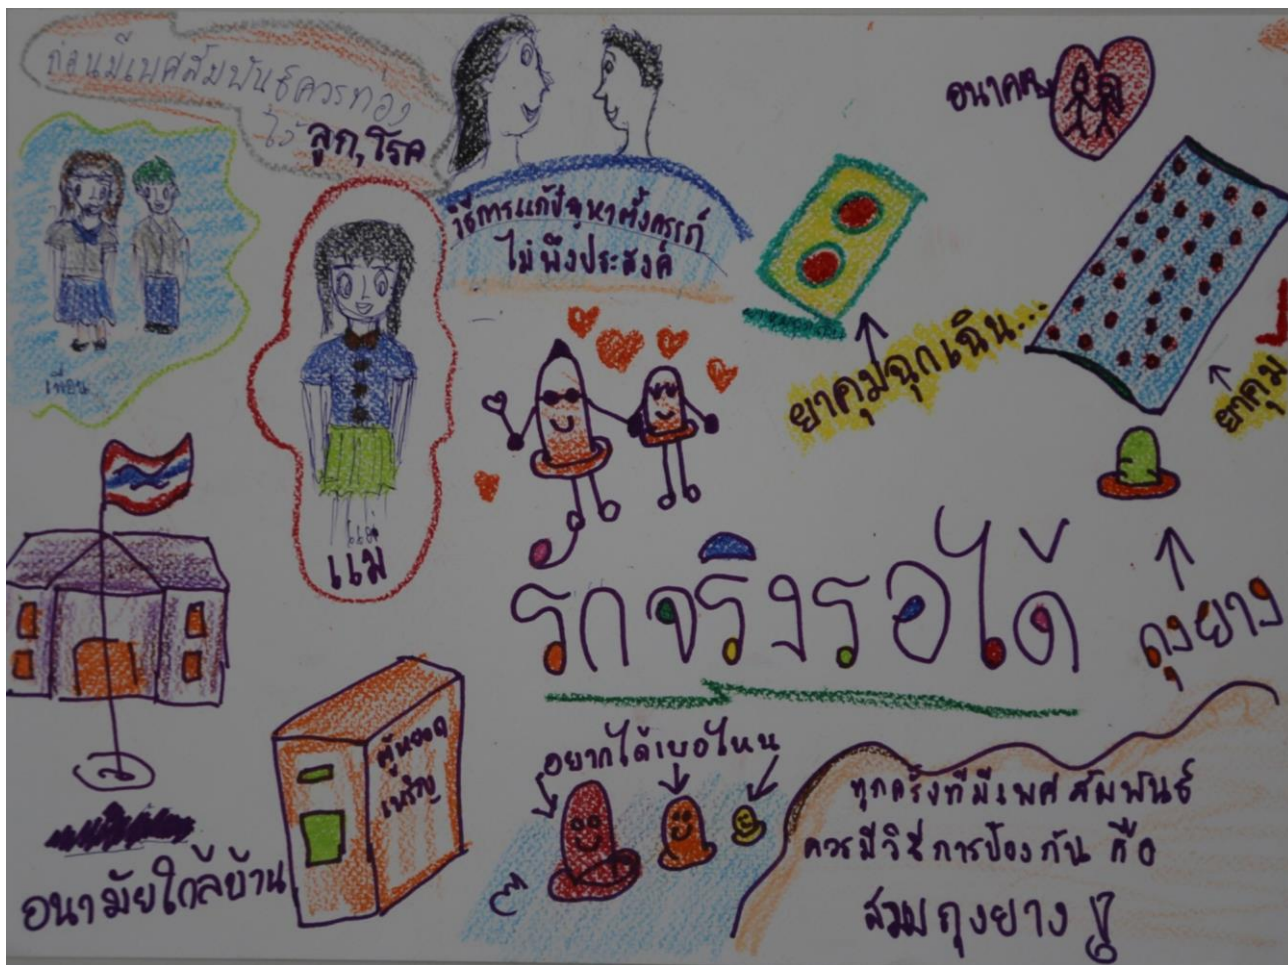 ก่อนมีเพศสัมพันธ์ควรท่อง
ไว้ ลูก,โรค
วิธีการแก้ปัญหาตั้งครรภ์
ไม่พึงประสงค์
อนาคต
ยาคุมฉุกเฉิน...
ยาคุม
เพื่อน
แม่
รักจริงรอได้
ถุงยาง
ตู้หยอด
เหรียญ
อนามัยใกล้บ้าน
อยากได้เบอไหน
ทุกครั้งที่มีเพศสัมพันธ์
ควรมีวิธีการป้องกัน คือ
สวมถุงยาง